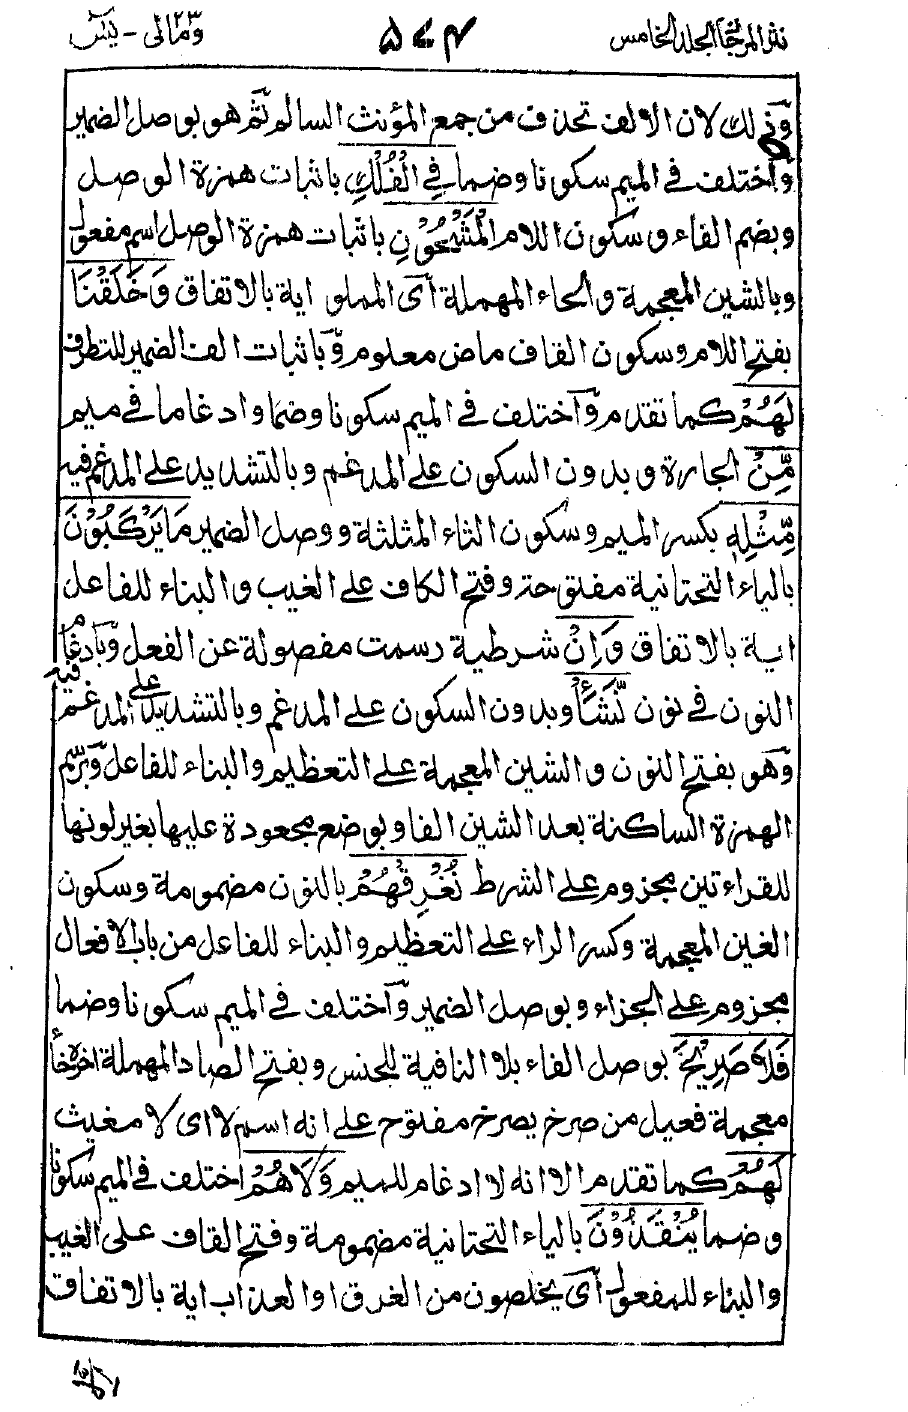 نثر المرجان الجلد الخامس
۵۷۴
ومالی ۲۳ - یٰسٓ
وذٰلك لان الالف تحذف من جمع المؤنث السالم ثم هو بوصل الضمير
واختلف في الميم سكونا وضما فِي الْفُلْكِ باثبات همزة الوصل
وبضم الفاء وسكون اللام الْمَشْحُوْنِ باثبات همزة الوصل اسم مفعول
وبالشين المعجمة والحاء المهملة اى المملو اية بالاتفاق وَخَلَقْنَا
بفتح اللام وسكون القاف ماض معلوم وباثبات الف الضمير للتطرف
لَهُمْ كما تقدم واختلف في الميم سكونا وضما وادغاما في ميم
مِّنْ الجارة وبدون السكون على المدغم وبالتشديد على المدغم فيه
مِّثْلِهٖ بكسر الميم وسكون الثاء المثلثة ووصل الضمير مَا يَرْكَبُوْنَ
بالياء التحتانية مفتوحة وفتح الكاف على الغيب والبناء للفاعل
اية بالاتفاق وَاِنْ شرطية رسمت مفصولة عن الفعل وبادغام
النون في نون نَّشَأْ وبدون السكون على المدغم وبالتشديد على المدغم فيه
وهو بفتح النون والشين المعجمة على التعظيم والبناء للفاعل وبرسم
الهمزة الساكنة بعد الشين الفا وبوضع مجعودة عليها بغير لونها
للقراءتين مجزوم على الشرط نُغْرِقْهُمْ بالنون مضمومة وسكون
الغين المعجمة وكسر الراء على التعظيم والبناء للفاعل من باب الافعال
مجزوم على الجزاء وبوصل الضمير واختلف في الميم سكونا وضما
فَلَا صَرِيْخَ بوصل الفاء بلا النافية للجنس وبفتح الصاد المهملة اخره خاء
معجمة فعيل من صرخ يصرخ مفتوح على انه اسم لا اى لا مغيث
لَهُمْ كما تقدم الا انه لا ادغام للميم وَلَا هُمْ اختلف في الميم سكونا
وضما يُنْقَذُوْنَ بالياء التحتانية مضمومة وفتح القاف على الغيب
والبناء للمفعول اى يخلصون من الغرق او العذاب اية بالاتفاق